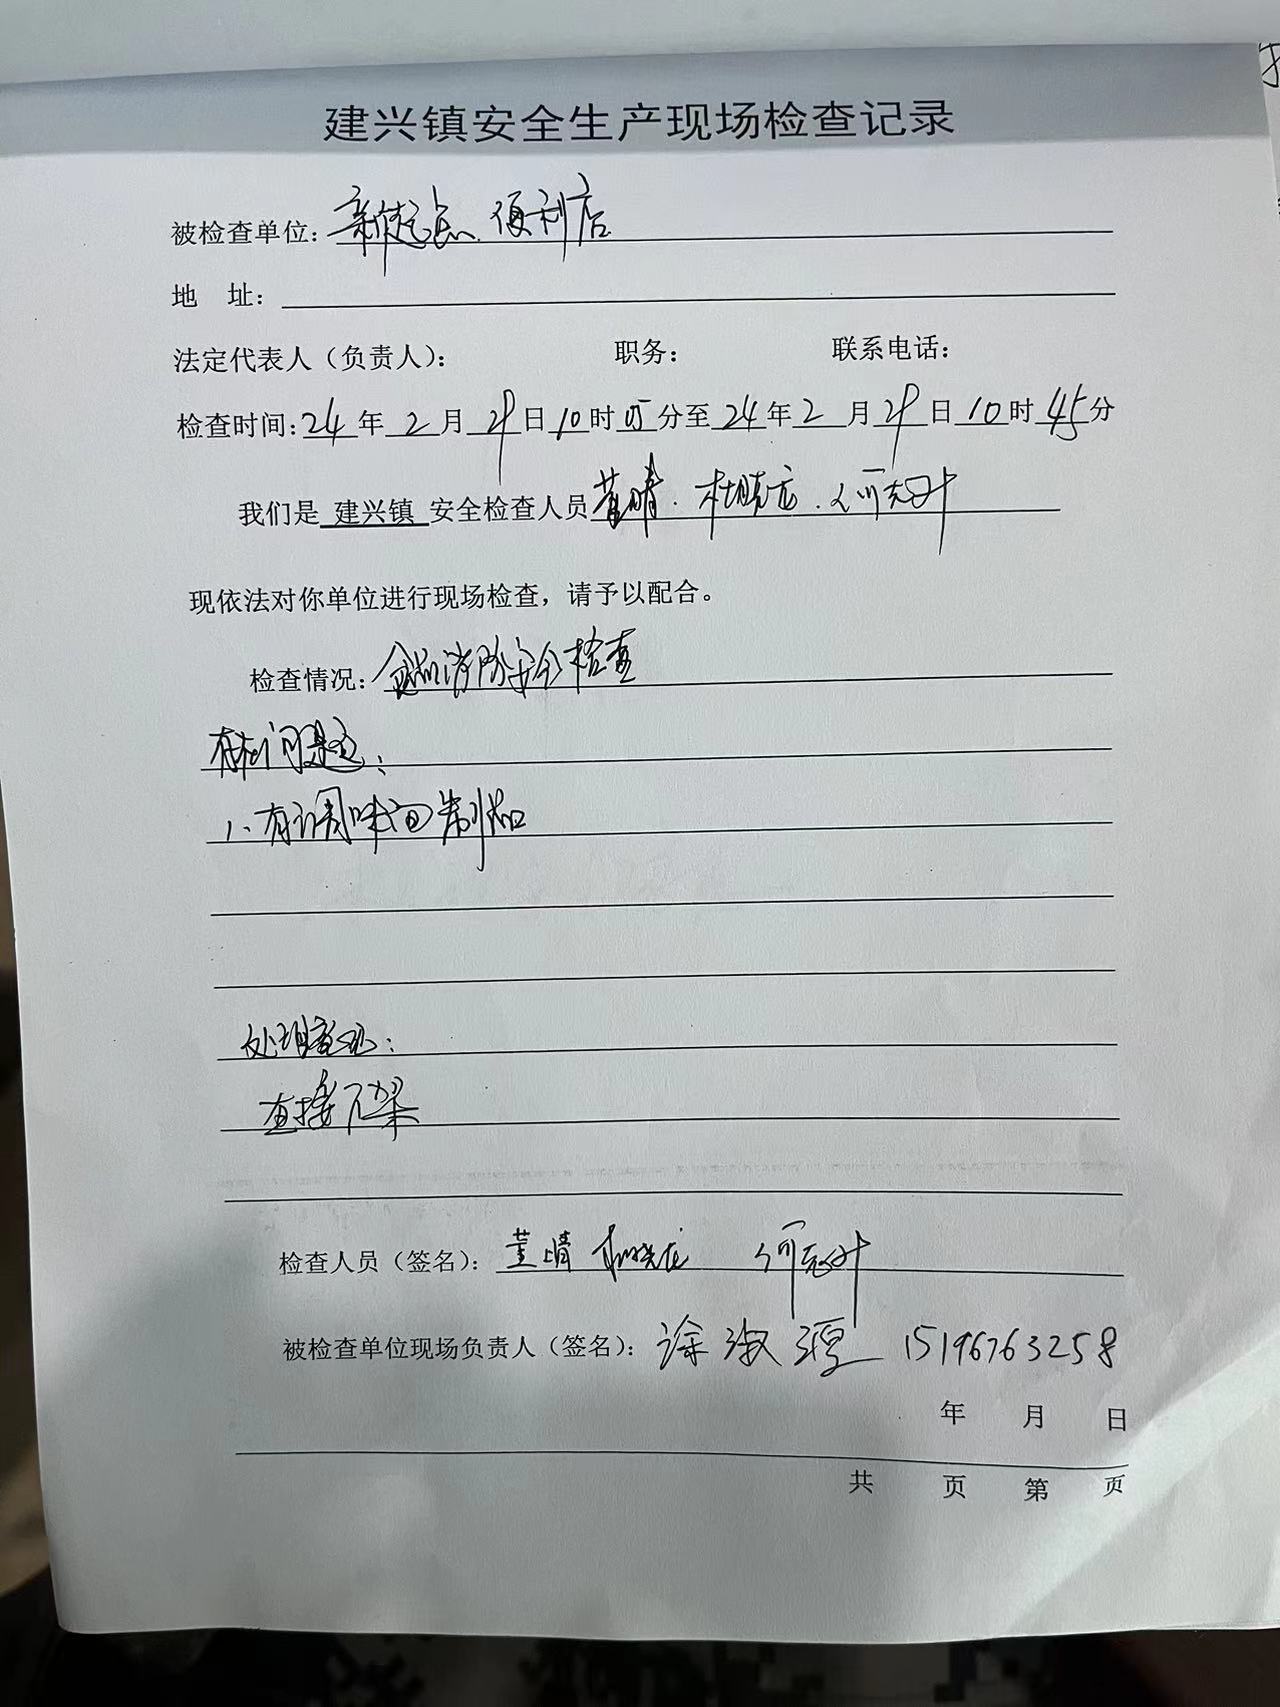 建兴镇安全生产现场检查记录
被检查单位：新起点便利店
地 址：
法定代表人（负责人）： 职务： 联系电话：
检查时间：24年2月29日10时05分至24年2月29日10时45分
我们是 建兴镇 安全检查人员 董晴、杜晓龙、何
现依法对你单位进行现场检查，请予以配合。
检查情况：食品消防安全检查
存在问题：
1、有调味面制品
处理意见：
直接下架
检查人员（签名）：董晴 杜晓龙 何
被检查单位现场负责人（签名）：涂淑 15196763258
年 月 日
共 页 第 页